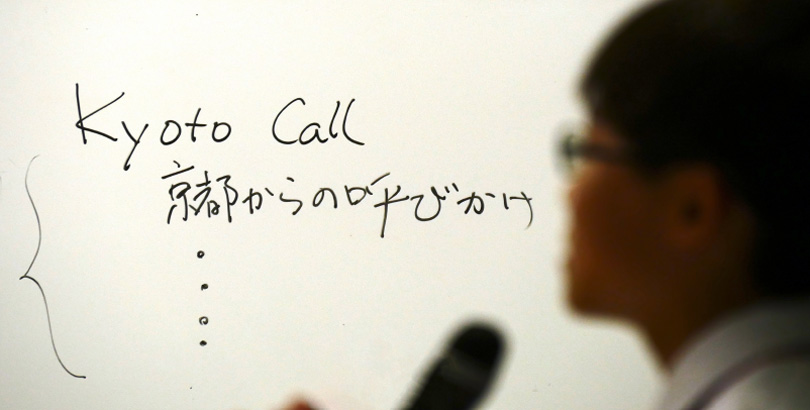 Kyoto Call
京都からの呼びかけ